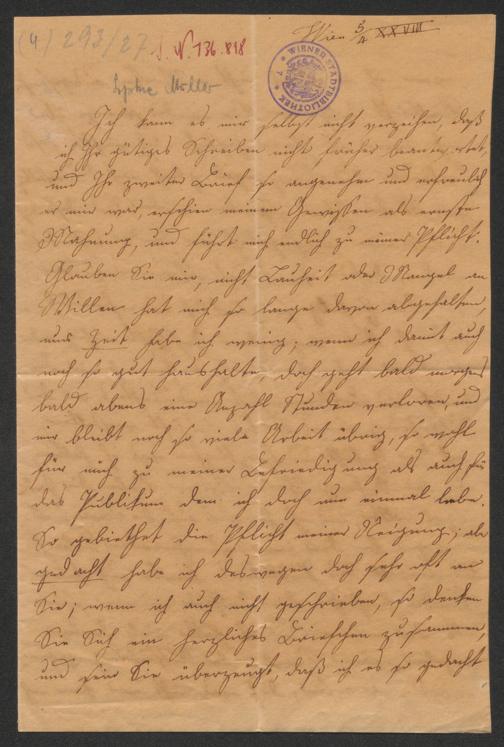 (4) 293/27
J. N. 136.818
Wien 5/4 XXVIII
WIENER STADTBIBLIOTHEK
Sophie Müller
Ich kann es mir selbst nicht verzeihen, daß
ich Ihr gütiges Schreiben nicht früher beantwortet,
und Ihr zweiter Brief so angenehm und erfreulich
er mir war, erschien meinem Gewissen als ernste
Mahnung, und führt mich endlich zu meiner Pflicht.
Glauben Sie mir, nicht Lauheit oder Mangel an
Willen hat mich so lange davon abgehalten,
nur Zeit habe ich wenig; wenn ich damit auch
noch so gut haushalte, doch geht bald morgens
bald abens eine Anzahl Stunden verloren, und
mir bleibt noch so viele Arbeit übrig, so wohl
für mich zu meiner Befriedigung als auch für
das Publikum dem ich doch nun einmal lebe.
So gebiethet die Pflicht meiner Neigung; aber
gedacht habe ich deswegen doch sehr oft an
Sie; wenn ich auch nicht geschrieben, so denken
Sie Sich ein herzliches Briefchen zusammen,
und sein Sie überzeugt, daß ich es so gedacht